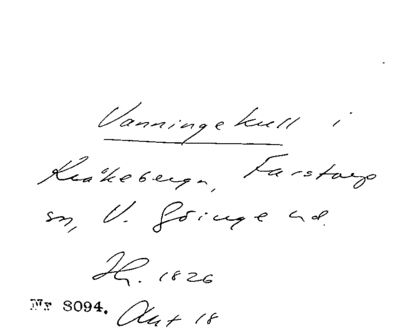 Vanningekull i
Kråkeberga, Farstorp
sn, V. Göinge hd.
Jh. 1826
Nr 8094. Akt 18